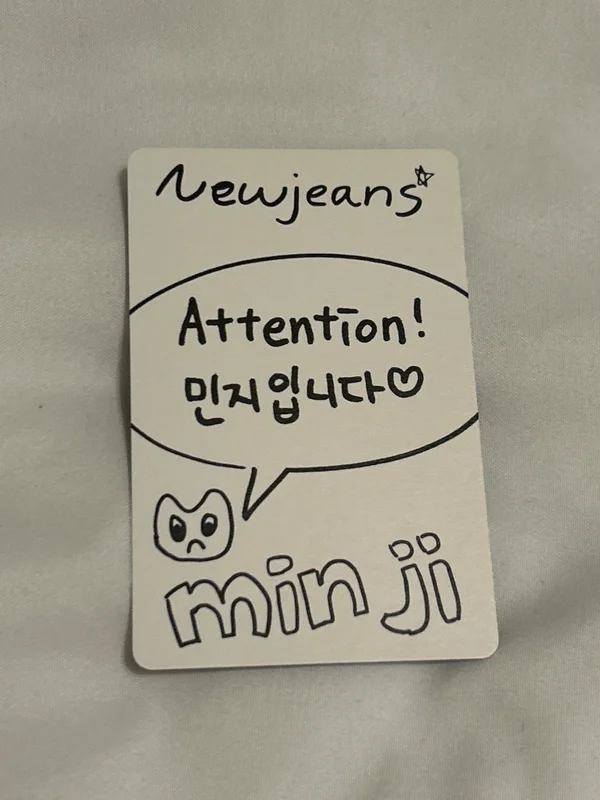 Newjeans
Attention!
민지입니다♡
minji